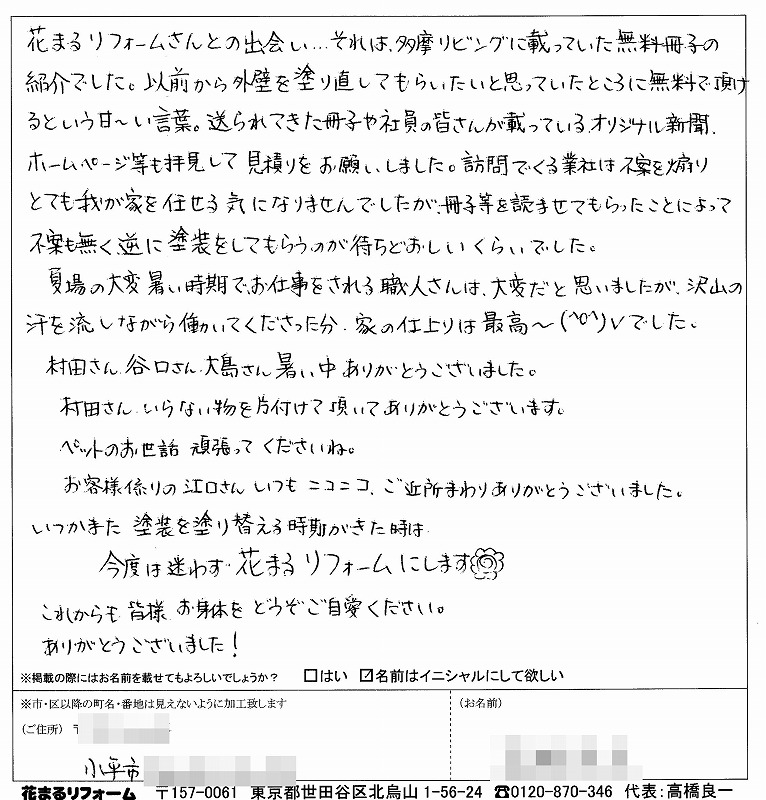 花まるリフォームさんとの出会い…それは、多摩リビングに載っていた無料冊子の
紹介でした。以前から外壁を塗り直してもらいたいと思っていたところに無料で頂け
るという甘〜い言葉。送られてきた冊子や社員の皆さんが載っているオリジナル新聞、
ホームページ等も拝見して見積りをお願いしました。訪問でくる業社は不案を煽り
とても我が家を任せる気になりませんでしたが、冊子等を読ませてもらったことによって
不案も無く逆に塗装をしてもらうのが待ちどおしいくらいでした。
夏場の大変暑い時期で、お仕事をされる職人さんは、大変だと思いましたが、沢山の
汗を流しながら働いてくださった分、家の仕上りは最高〜(^o^)vでした。
村田さん、谷口さん、大島さん暑い中ありがとうございました。
村田さん、いらない物を片付けて頂いてありがとうございます。
ペットのお世話頑張ってくださいね。
お客様係りの江口さんいつもニコニコ、ご近所まわりありがとうございました。
いつかまた塗装を塗り替える時期がきた時は
今度は迷わず花まるリフォームにします
これからも皆様お身体をどうぞご自愛ください。
ありがとうございました!
※掲載の際にはお名前を載せてもよろしいでしょうか? □はい ☑名前はイニシャルにして欲しい
※市・区以降の町名・番地は見えないように加工致します (お名前)
(ご住所) 〒
小平市
花まるリフォーム 〒157-0061 東京都世田谷区北烏山 1-56-24 ☎0120-870-346 代表:高橋良一